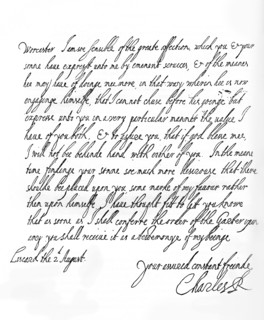 Worcester I am sensible of the greate affection, which you & your
sonne have exprest unto me by eminent services, & of the meanes
hee may have of doinge mee more, in that way wherein hee is now
engaginge himselfe, that I cannot chuse before his goinge but
express unto you in a very particular manner the value I
have of you both, & to assure you, that if god blesse mee,
I will not bee behinde hand with either of you. In the meane
time findinge your sonne
should be placed upon you some marke of my favour rather
then upon himselfe, I have thought fitt to let you knowe
that as sone as I shall conferre the order of the Garter upon
any you shall receive it as a testemonye of my beinge
Luccard the 2 August.
Your assured constant freinde
Charles R